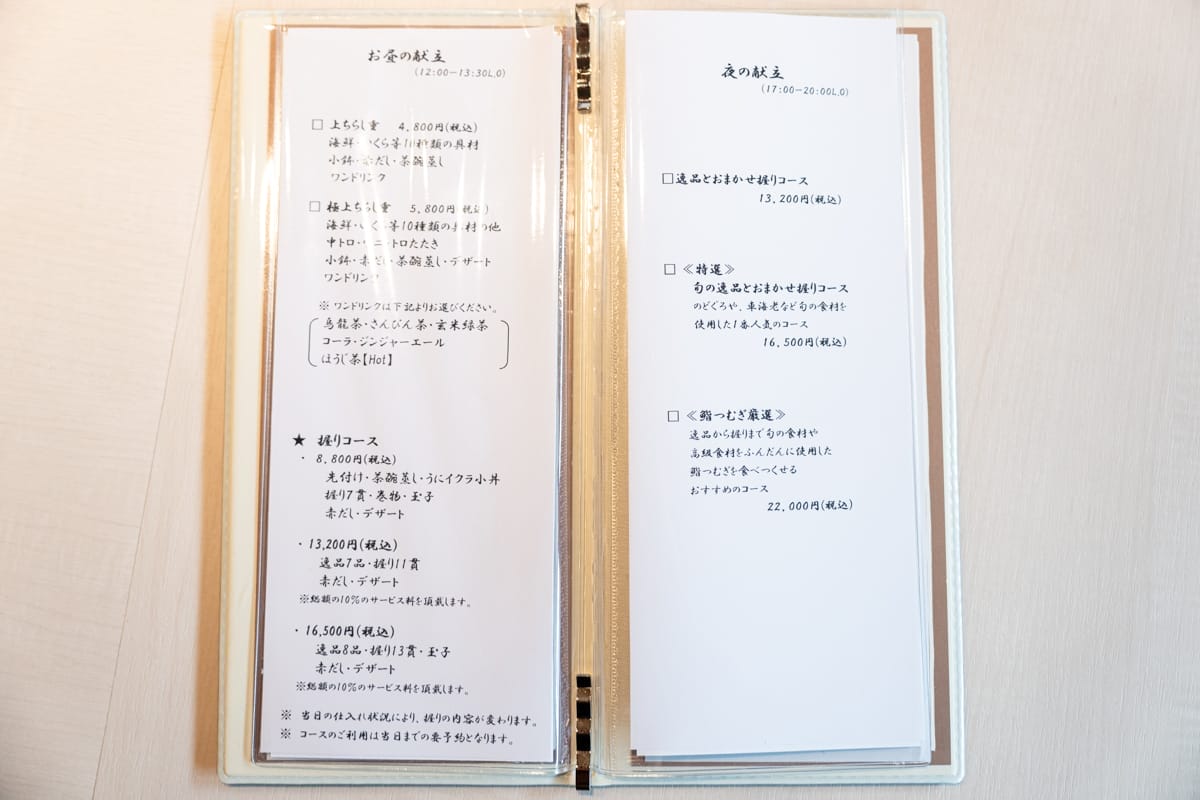 お昼の献立
(12:00-13:30L.O)
□ 上ちらし重 4,800円(税込)
海鮮・いくら等10種類の具材
小鉢・赤だし・茶碗蒸し
ワンドリンク
□ 極上ちらし重 5,800円(税込)
海鮮・いくら等10種類の具材の他
中トロ・ウニ・トロたたき
小鉢・赤だし・茶碗蒸し・デザート
ワンドリンク
※ ワンドリンクは下記よりお選びください。
烏龍茶・さんぴん茶・玄米緑茶
コーラ・ジンジャーエール
ほうじ茶【Hot】
★ 握りコース
・ 8,800円(税込)
先付け・茶碗蒸し・うにイクラ小丼
握り7貫・巻物・玉子
赤だし・デザート
・ 13,200円(税込)
逸品7品・握り11貫
赤だし・デザート
※総額の10%のサービス料を頂戴します。
・ 16,500円(税込)
逸品8品・握り13貫・玉子
赤だし・デザート
※総額の10%のサービス料を頂戴します。
※ 当日の仕入れ状況により、握りの内容が変わります。
※ コースのご利用は当日までの要予約となります。
夜の献立
(17:00-20:00L.O)
□逸品とおまかせ握りコース
13,200円(税込)
□ ≪特選≫
旬の逸品とおまかせ握りコース
のどぐろや、車海老など旬の食材を
使用した1番人気のコース
16,500円(税込)
□ ≪鮨つむぎ厳選≫
逸品から握りまで旬の食材や
高級食材をふんだんに使用した
鮨つむぎを食べつくせる
おすすめのコース
22,000円(税込)